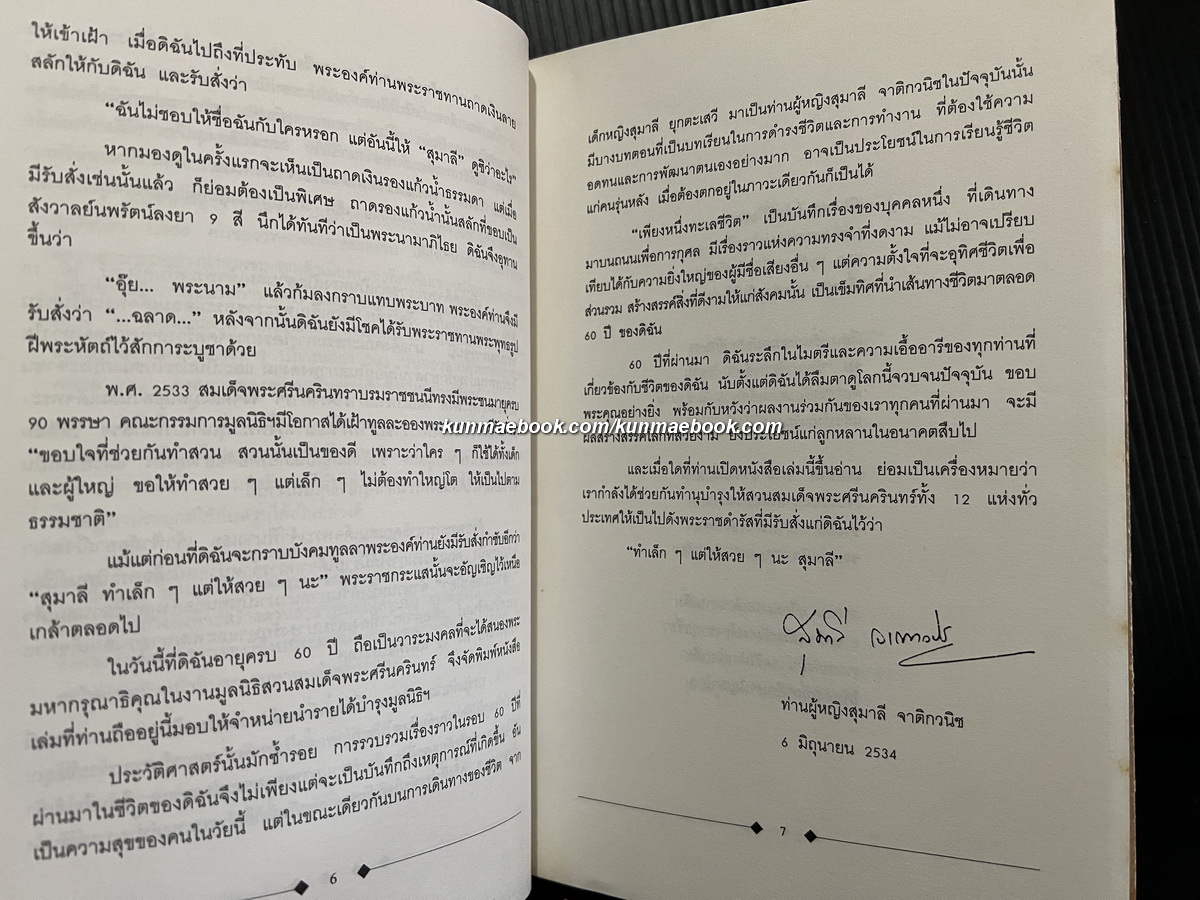 ให้เข้าเฝ้า เมื่อดิฉันไปถึงที่ประทับ พระองค์ท่านพระราชทานถาดเงินลาย
สลักให้กับดิฉัน และรับสั่งว่า
“ฉันไม่ชอบให้ชื่อฉันกับใครหรอก แต่อันนี้ให้ “สุมาลี” ดูซิว่าอะไร”
หากมองดูในครั้งแรกจะเห็นเป็นถาดเงินรองแก้วน้ำธรรมดา แต่เมื่อ
มีรับสั่งเช่นนั้นแล้ว ก็ย่อมต้องเป็นพิเศษ ถาดรองแก้วน้ำนั้นสลักที่ขอบเป็น
สังวาลย์นพรัตน์ลงยา 9 สี นึกได้ทันทีว่าเป็นพระนามาภิไธย ดิฉันจึงอุทาน
ขึ้นว่า
“อุ๊ย... พระนาม” แล้วก้มลงกราบแทบพระบาท พระองค์ท่านจึงมี
รับสั่งว่า “...ฉลาด...” หลังจากนั้นดิฉันยังมีโชคได้รับพระราชทานพระพุทธรูป
ฝีพระหัตถ์ไว้สักการะบูชาด้วย
พ.ศ. 2533 สมเด็จพระศรีนครินทราบรมราชชนนีทรงมีพระชนมายุครบ
90 พรรษา คณะกรรมการมูลนิธิฯมีโอกาสได้เฝ้าทูลละอองพระ
“ขอบใจที่ช่วยกันทำสวน สวนนั้นเป็นของดี เพราะว่าใคร ๆ ก็ใช้ได้ทั้งเด็ก
และผู้ใหญ่ ขอให้ทำสวย ๆ แต่เล็ก ๆ ไม่ต้องทำใหญ่โต ให้เป็นไปตาม
ธรรมชาติ”
แม้แต่ก่อนที่ดิฉันจะกราบบังคมทูลลาพระองค์ท่านยังมีรับสั่งกำชับอีกว่า
“สุมาลี ทำเล็ก ๆ แต่ให้สวย ๆ นะ” พระราชกระแสนั้นจะอัญเชิญไว้เหนือ
เกล้าตลอดไป
ในวันนี้ที่ดิฉันอายุครบ 60 ปี ถือเป็นวาระมงคลที่จะได้สนองพระ
มหากรุณาธิคุณในงานมูลนิธิสวนสมเด็จพระศรีนครินทร์ จึงจัดพิมพ์หนังสือ
เล่มที่ท่านถืออยู่นี้มอบให้จำหน่ายนำรายได้บำรุงมูลนิธิฯ
ประวัติศาสตร์นั้นมักซ้ำรอย การรวบรวมเรื่องราวในรอบ 60 ปีที่
ผ่านมาในชีวิตของดิฉันจึงไม่เพียงแต่จะเป็นบันทึกถึงเหตุการณ์ที่เกิดขึ้น อัน
เป็นความสุขของคนในวัยนี้ แต่ในขณะเดียวกันบนการเดินทางของชีวิต จาก
6
เด็กหญิงสุมาลี ยุกตะเสวี มาเป็นท่านผู้หญิงสุมาลี จาติกวนิชในปัจจุบันนั้น
มีบางบทตอนที่เป็นบทเรียนในการดำรงชีวิตและการทำงาน ที่ต้องใช้ความ
อดทนและการพัฒนาตนเองอย่างมาก อาจเป็นประโยชน์ในการเรียนรู้ชีวิต
แก่คนรุ่นหลัง เมื่อต้องตกอยู่ในภาวะเดียวกันก็เป็นได้
“เพียงหนึ่งทะเลชีวิต” เป็นบันทึกเรื่องของบุคคลหนึ่ง ที่เดินทาง
มาบนถนนเพื่อการกุศล มีเรื่องราวแห่งความทรงจำที่งดงาม แม้ไม่อาจเปรียบ
เทียบได้กับความยิ่งใหญ่ของผู้มีชื่อเสียงอื่น ๆ แต่ความตั้งใจที่จะอุทิศชีวิตเพื่อ
ส่วนรวม สร้างสรรค์สิ่งที่ดีงามให้แก่สังคมนั้น เป็นเข็มทิศที่นำเส้นทางชีวิตมาตลอด
60 ปี ของดิฉัน
60 ปีที่ผ่านมา ดิฉันระลึกในไมตรีและความเอื้ออารีของทุกท่านที่
เกี่ยวข้องกับชีวิตของดิฉัน นับตั้งแต่ดิฉันได้ลืมตาดูโลกนี้จวบจนปัจจุบัน ขอบ
พระคุณอย่างยิ่ง พร้อมกับหวังว่าผลงานร่วมกันของเราทุกคนที่ผ่านมา จะมี
ผลสร้างสรรค์โลกที่สวยงาม ยังประโยชน์แก่ลูกหลานในอนาคตสืบไป
และเมื่อใดที่ท่านเปิดหนังสือเล่มนี้ขึ้นอ่าน ย่อมเป็นเครื่องหมายว่า
เรากำลังได้ช่วยกันทำนุบำรุงให้สวนสมเด็จพระศรีนครินทร์ทั้ง 12 แห่งทั่ว
ประเทศให้เป็นไปดังพระราชดำรัสที่มีรับสั่งแก่ดิฉันไว้ว่า
“ทำเล็ก ๆ แต่ให้สวย ๆ นะ สุมาลี”
สุมาลี จาติกวนิช
ท่านผู้หญิงสุมาลี จาติกวนิช
6 มิถุนายน 2534
7
kunmaebook.com/kunmaebook.com